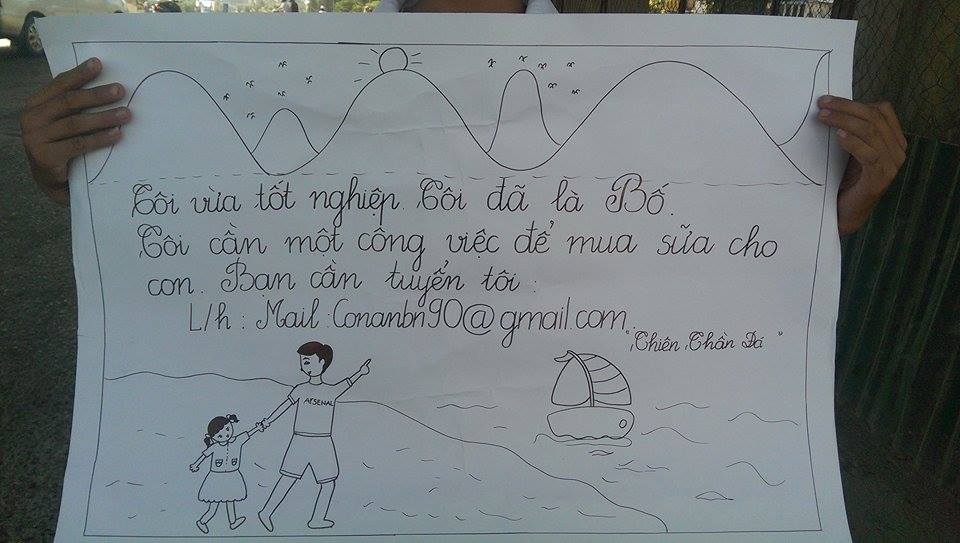 Tôi vừa tốt nghiệp Tôi đã là Bố.
Tôi cần một công việc để mua sữa cho
con. Bạn cần tuyển tôi :
L/h : Mail : Conanbn90@gmail.com.
"Thiên Thần Đá"
ARSENAL